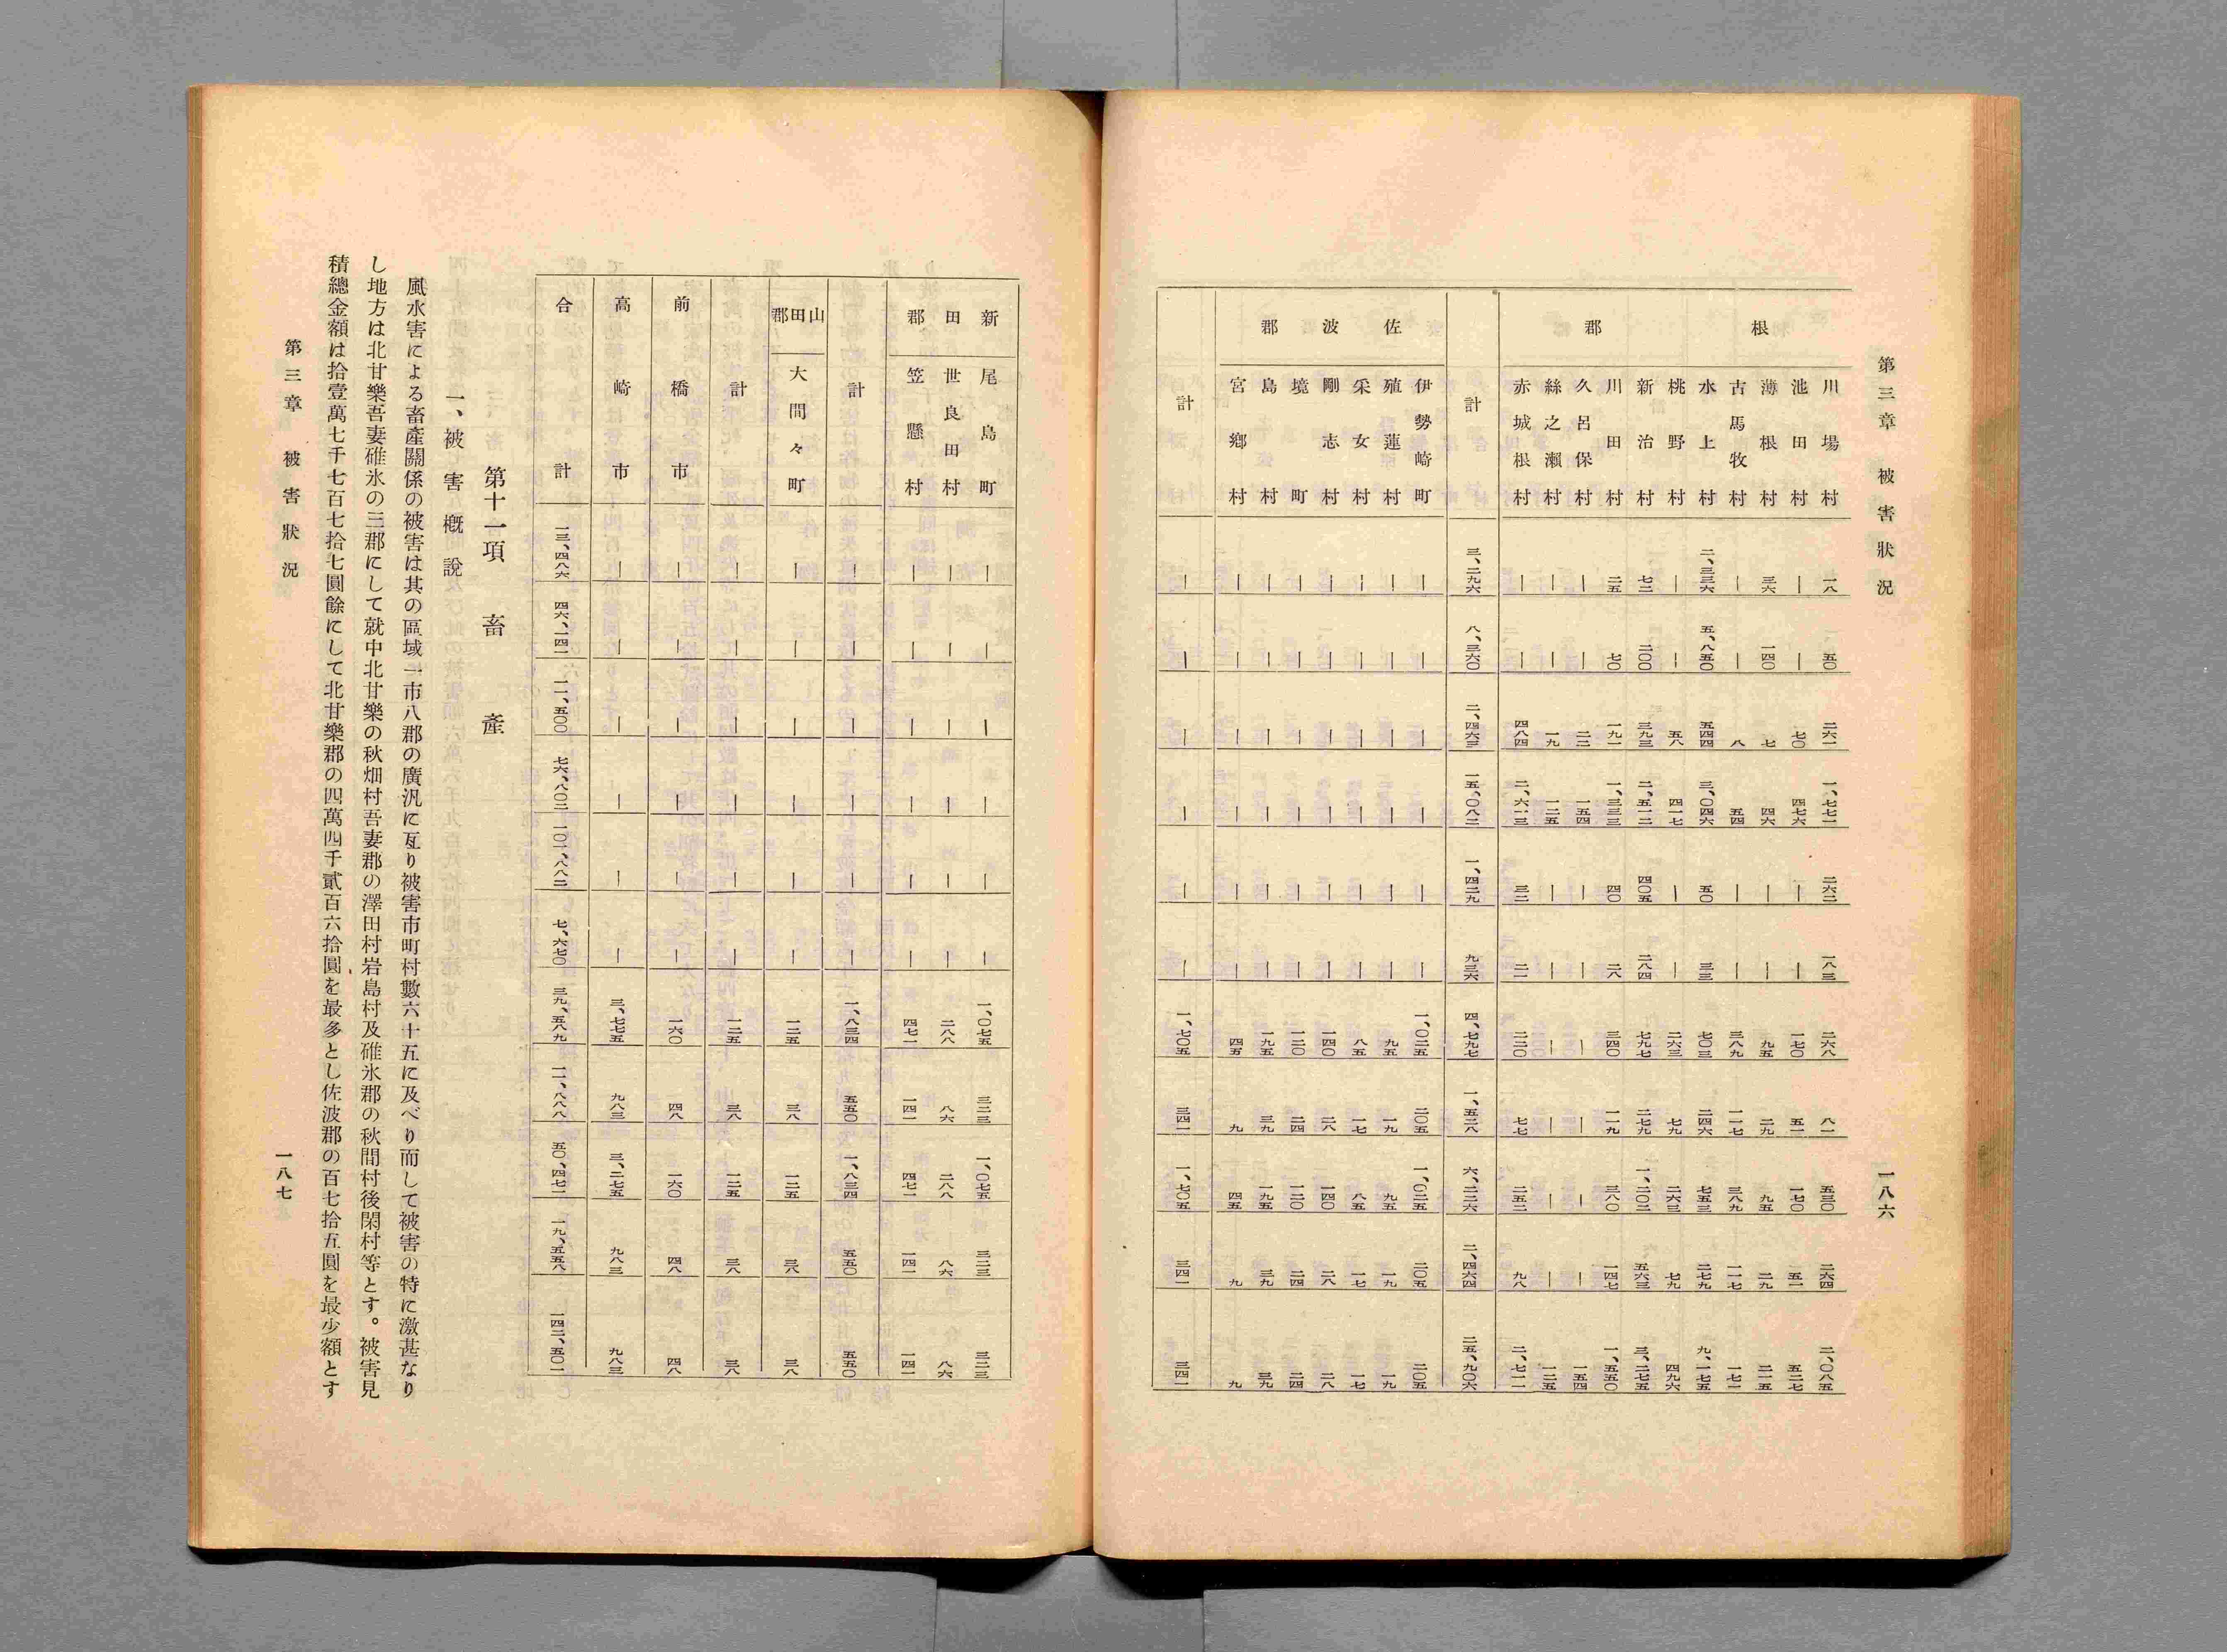 第三章 被害狀況
一八六
根郡
川場村 一八 五〇 二六一 一、七七一 二六二 一八三 二六八 八一 五三〇 二六四 二、〇八五
池田村 ― ― 七〇 四七六 ― ― 一七〇 五一 一七〇 五一 五二七
薄根村 三六 一四〇 七 四六 ― ― 九五 二九 九五 二九 二一五
古馬牧村 ― ― 八 五四 ― ― 三八九 一一七 三八九 一一七 一七一
水上村 二、三三六 五、八五〇 五四四 三、〇四六 五〇 三三 七〇三 二四六 七五三 二七九 九、一七五
桃野村 ― ― 五八 四一七 ― ― 二六三 七九 二六三 七九 四九六
新治村 七二 二〇〇 三九三 二、五一二 四〇五 二八四 七九七 二七九 一、二〇二 五六三 三、二七五
川田村 二五 七〇 一九一 一、三三三 四〇 二八 三四〇 一一九 三八〇 一四七 一、五五〇
久呂保村 ― ― 二二 一五四 ― ― ― ― ― ― 一五四
絲之瀨村 ― ― 一九 一二五 ― ― ― ― ― ― 一二五
赤城根村 ― ― 四八四 二、六一三 三二 二一 二二〇 七七 二五二 九八 二、七一一
計 三、二九六 八、三六〇 二、四六三 一五、〇八二 一、四二九 九三六 四、七九七 一、五二八 六、二二六 二、四六四 二五、九〇六
佐波郡
伊勢崎町 ― ― ― ― ― ― 一、〇二五 二〇五 一、〇二五 二〇五 二〇五
殖蓮村 ― ― ― ― ― ― 九五 一九 九五 一九 一九
采女村 ― ― ― ― ― ― 八五 一七 八五 一七 一七
剛志村 ― ― ― ― ― ― 一四〇 二八 一四〇 二八 二八
境町 ― ― ― ― ― ― 一二〇 二四 一二〇 二四 二四
島村 ― ― ― ― ― ― 一九五 三九 一九五 三九 三九
宮鄉村 ― ― ― ― ― ― 四五 九 四五 九 九
計 ― ― ― ― ― ― 一、七〇五 三四一 一、七〇五 三四一 三四一
新田郡
尾島町 ― ― ― ― ― ― 一、〇七五 三二三 一、〇七五 三二三 三二三
世良田村 ― ― ― ― ― ― 二八八 八六 二八八 八六 八六
笠懸村 ― ― ― ― ― ― 四七一 一四一 四七一 一四一 一四一
計 ― ― ― ― ― ― 一、八三四 五五〇 一、八三四 五五〇 五五〇
山田郡
大間々町 ― ― ― ― ― ― 一二五 三八 一二五 三八 三八
計 ― ― ― ― ― ― 一二五 三八 一二五 三八 三八
前橋市 ― ― ― ― ― ― 一六〇 四八 一六〇 四八 四八
高崎市 ― ― ― ― ― ― 三、七七五 九八三 三、二七五 九八三 九八三
合計 一三、四八六 四六、一四一 一一、五〇〇 七六、八〇二 一〇一、八八二 七、六七〇 三九、五八九 一一、八八八 五〇、四七一 一九、五五八 一四二、五〇一
第十一項 畜產
一、被害槪說
風水害による畜產關係の被害は其の區域一市八郡の廣汎に亙り被害市町村數六十五に及べり而して被害の特に激甚なり
し地方は北甘樂吾妻碓氷の三郡にして就中北甘樂の秋畑村吾妻郡の澤田村岩島村及碓氷郡の秋間村後閑村等とす。被害見
積總金額は拾壹萬七千七百七拾七圓餘にして北甘樂郡の四萬四千貳百六拾圓を最多とし佐波郡の百七拾五圓を最少額とす
第三章 被害狀況
一八七